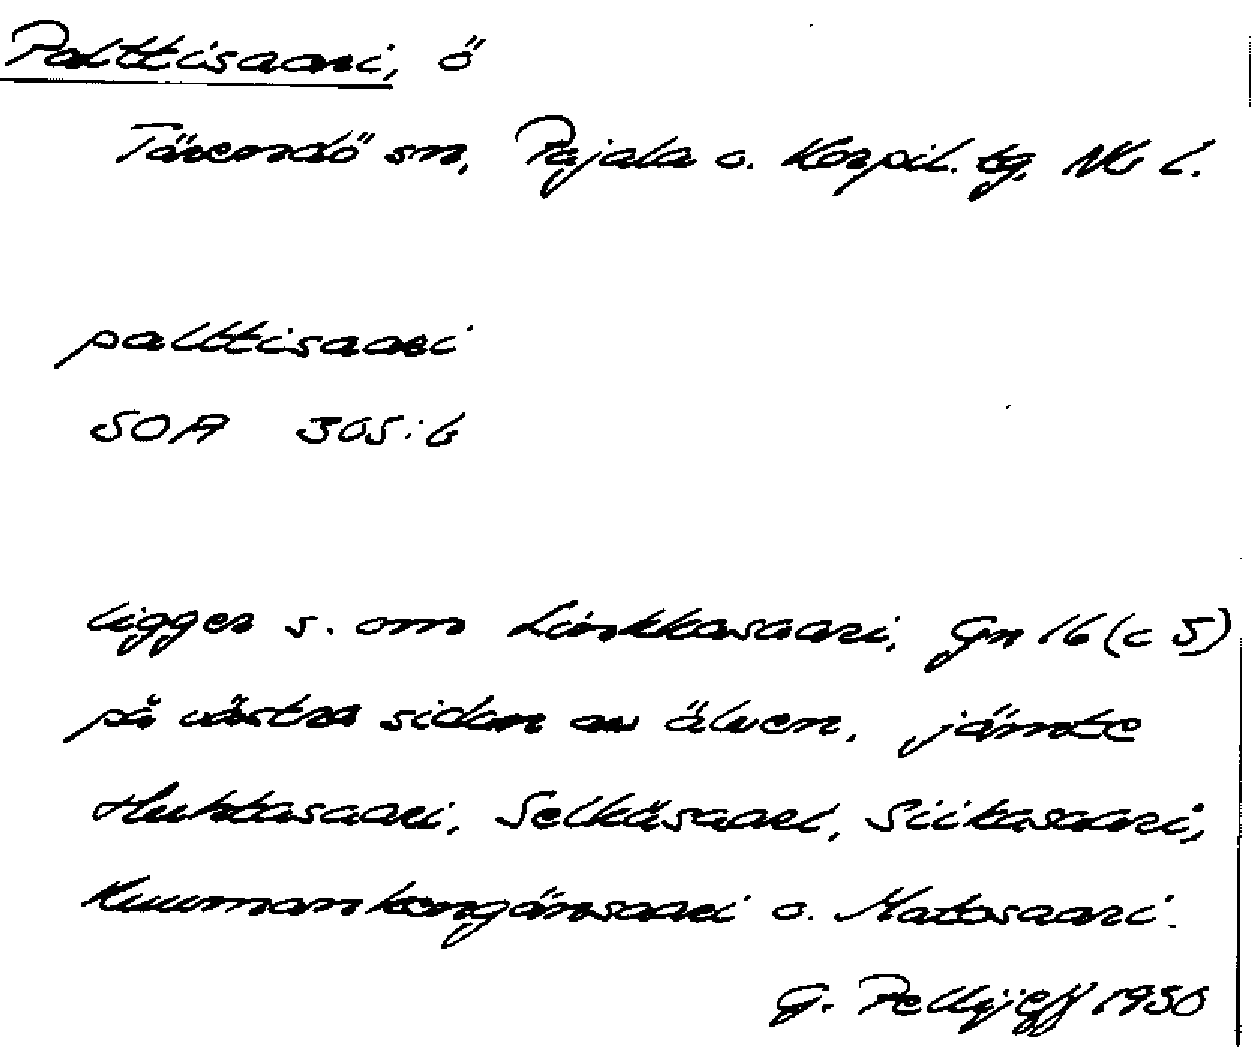 Palttisaari, ö
Tärendö sn, Pajala o. Korpil. tg, Nb l.
palttisaari
SOA 305:6
ligger s. om Linkkasaari, Gn 16 (c 5)
på västra sidan av älven, jämte
Huhtasaari, Selkäsaari, Siikasaari,
Kuumankengänsaari o. Matosaari.
G. Pellijeff 1950